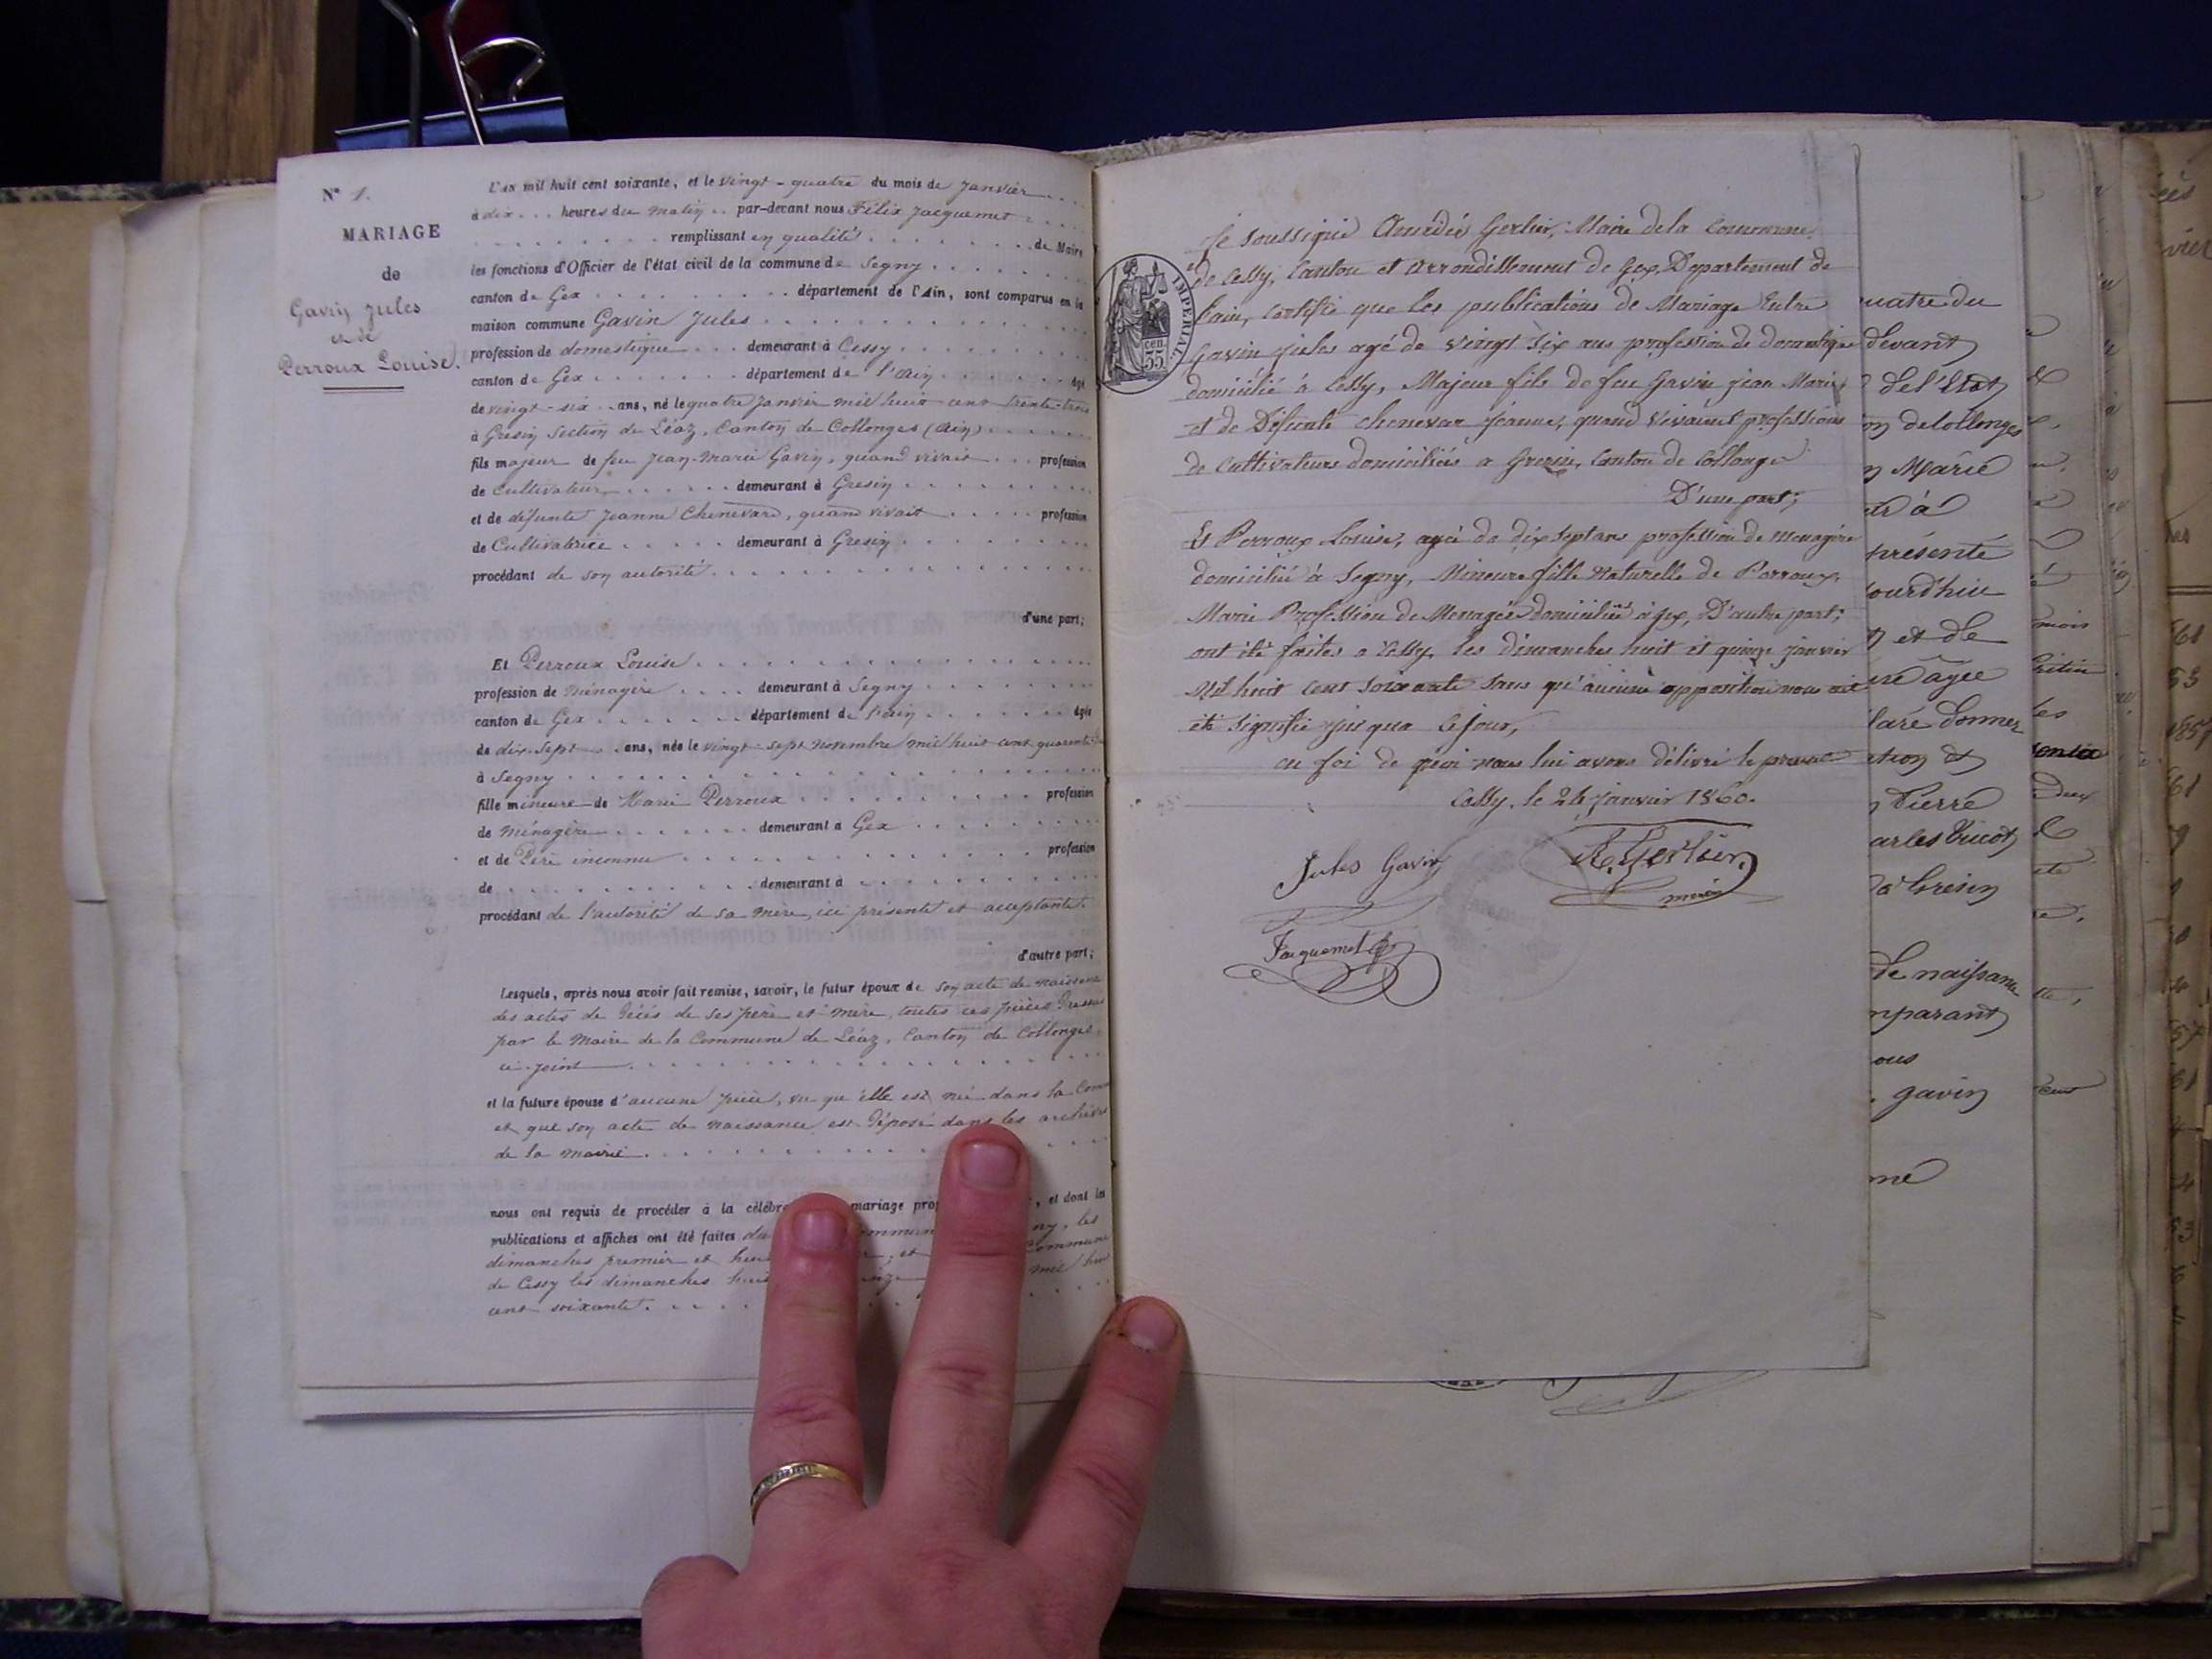 N° 1.
MARIAGE
de
Gavin Jules
et de
Perroux Louise.
L'an mil huit cent soixante, et le vingt-quatre du mois de Janvier
à dix heures du matin par-devant nous Félix Jacquemet
remplissant en qualité de Maire
les fonctions d'Officier de l'état civil de la commune de Segny
canton de Gex département de l'Ain, sont comparus en la
maison commune Gavin Jules
profession de domestique demeurant à Cessy
canton de Gex département de l'Ain âgé
de vingt-six ans, né le quatre janvier mil huit cent trente-trois
à Gresin Section de Léaz, Canton de Collonges (Ain)
fils majeur de feu Jean-Marie Gavin, quand vivait profession
de Cultivateur demeurant à Gresin
et de défunte Jeanne Chenevard, quand vivait profession
de Cultivatrice demeurant à Gresin
procédant de son autorité
d'une part;
Et Perroux Louise
profession de Ménagère demeurant à Segny
canton de Gex département de l'Ain âgée
de dix-sept ans, née le vingt-sept novembre mil huit cent quarante
à Segny
fille mineure de Marie Perroux profession
de Ménagère demeurant à Gex
et de Père inconnu profession
de demeurant à
procédant de l'autorité de sa mère, ici présente et acceptante.
d'autre part;
Lesquels, après nous avoir fait remise, savoir, le futur époux de son acte de naissance
des actes de décès de ses père et mère, toutes ces pièces
par le Maire de la Commune de Léaz, Canton de Collonges,
ci-joint
et la future épouse d'aucune pièce, vu qu'elle est née dans la
et que son acte de naissance est déposé dans les archives
de la mairie
nous ont requis de procéder à la mariage , et dont les
publications et affiches ont été faites les
dimanches premier et et
de Cessy les dimanches huit mil huit
cent soixante.
Je soussigné Amédée Gerlier, Maire de la Commune
de Cessy, Canton et arrondissement de Gex, Département de
l'ain, certifie que les publications de Mariage Entre
Gavin Jules agé de vingt six ans profession de domestique
domicilié à Cessy, Majeur fils de feu Gavin jean Marie
et de Défunte Chenevar jeanne, quand vivaient professions
de Cultivateurs domiciliés a Gresin, Canton de Collonge
D'une part;
Et Perroux Louise, agée de dix sept ans profession de menagère
domiciliée à Segny, Mineure fille Naturelle de Perroux
Marie Profession de Menagère domiciliée à Gex, D'autre part;
ont été faites a Cessy les dimanches huit et quinze janvier
Mil huit cent soixante sans qu'aucune opposition nous ait
été signifié jusqua ce jour,
en foi de quoi nous lui avons délivré le présent
Cessy, le 24 janvier 1860.
Jules Gavin
A. Gerlier,
maire
Jacquemet
IMPERIAL
35 cen
uatre du
devant
de l'Etat
Marie
présenté
ourd'hui
et de
âgée
donner
Pierre
Gresin
de naissance
mparant
ous
gavin